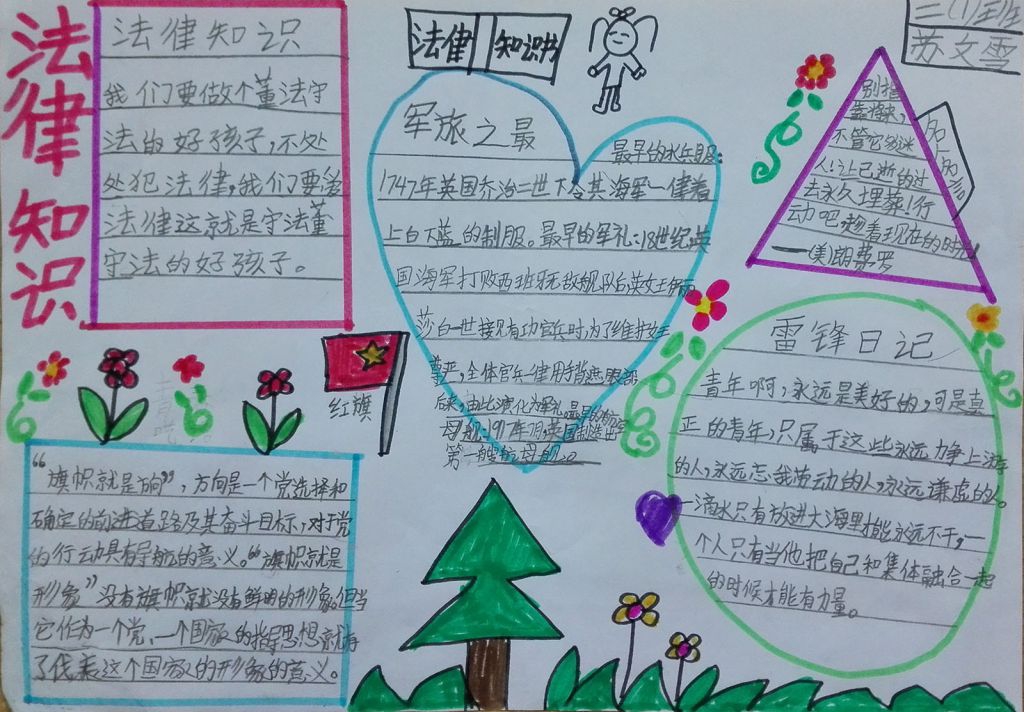 法律知识
法律知识
我们要做个董法守
法的好孩子,不处
处犯法律,我们要爱
法律这就是守法董
守法的好孩子。
法律 知识书
二(1)班
苏文雪
军旅之最
最早的水兵服:
1747年英国乔治二世下令其海军一律着
上白下蓝的制服。最早的军礼:18世纪英
国海军打败西班牙无敌舰队后英女王伊丽
莎白一世接见有功官兵时,为了维护女王
尊严,全体官兵一律用手背遮眼部
后来,由此演化为军礼。最早的航空
母舰:1917年
第一艘航空母舰。
别指
靠将来,
不管它多迷
人!让已逝的过
去永久埋葬!行
动吧,趁着现在的时光
——(美)朗费罗
名人名言
红旗
“旗帜就是方向”,方向是一个党选择和
确定的前进道路及其奋斗目标,对于党
的行动具有导航的意义。“旗帜就是
形象”没有旗帜就没有鲜明的形象。但当
它作为一个党、一个国家的指导思想就有
了代表这个国家的形象的意义。
雷锋日记
青年啊,永远是美好的,可是真
正的青年,只属于这些永远力争上游
的人,永远忘我劳动的人,永远谦虚的人。
一滴水只有放进大海里才能永远不干,一
个人只有当他把自己和集体融合一起
的时候才能有力量。